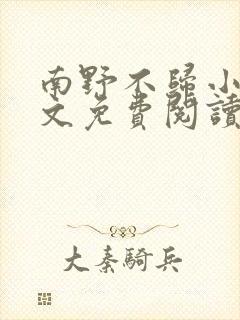 南野不歸小
文免費閱讀
大秦騎兵